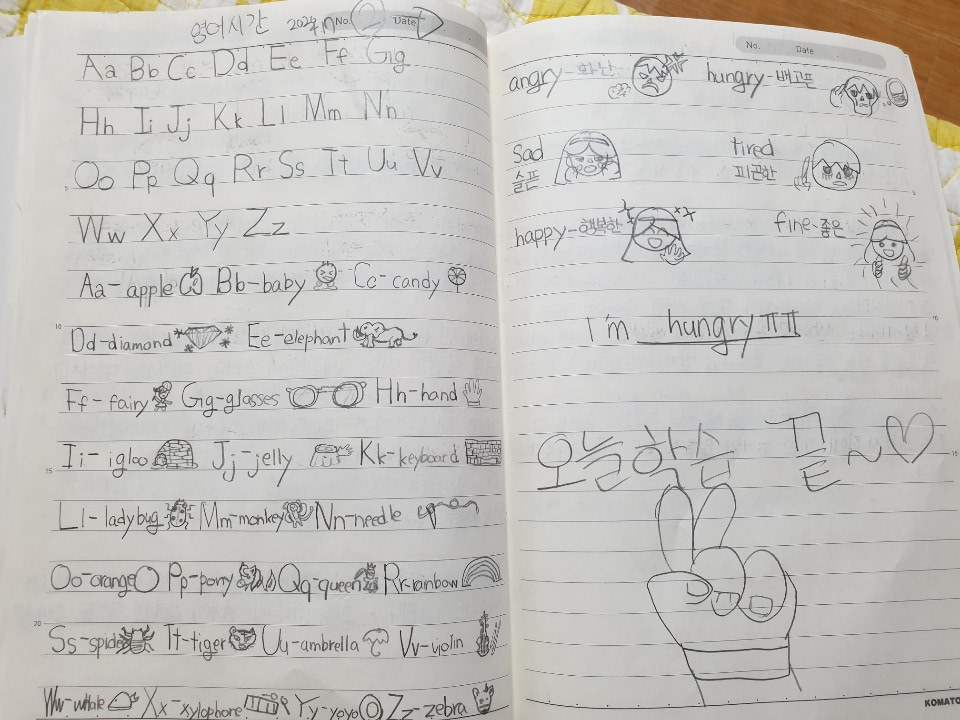 영어시간 No. Date
Aa Bb Cc Dd Ee Ff Gg
Hh Ii Jj Kk Ll Mm Nn
Oo Pp Qq Rr Ss Tt Uu Vv
Ww Xx Yy Zz
Aa-apple Bb-baby Cc-candy
Dd-diamond Ee-elephant
Ff-fairy Gg-glasses Hh-hand
Ii-igloo Jj-jelly Kk-keyboard
Ll-ladybug Mm-monkey Nn-needle
Oo-orange Pp-pony Qq-queen Rr-rainbow
Ss-spider Tt-tiger Uu-umbrella Vv-violin
Ww-whale Xx-xylophone Yy-yoyo Zz-zebra
5
10
15
20
No. Date
angry-화난 hungry-배고픈
sad tired
슬픈 피곤한
happy-행복한 fine-좋은
I'm hungry ㅠㅠ
오늘학습 끝~♡
5
10
15
KOMATO